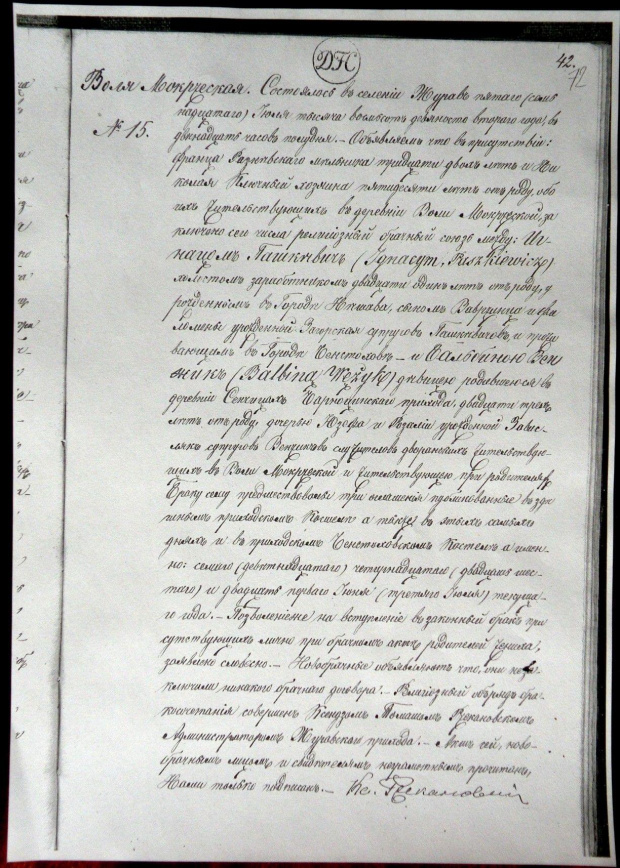 ДГС
42.
72
Воля Мокржеская. Состоялось въ селеніи Журавъ пятаго (семь
№ 15.
надцатаго) Іюля тысяча восемсотъ девяносто втораго года, въ
двенадцать часовъ полудня. — Объявляемъ что въ присутствіи:
Франца мельника тридцати двохъ лѣтъ и Ни-
колая Ключный хозяина пятидесяти лѣтъ отъ роду, обо
ихъ жительствующихъ въ деревни Воли Мокржеской, за
ключенъ сего числа религіозный брачный союзъ между: Иг-
нацемъ Пашкевичъ (Ignacym Paszkiewicz)
холостомъ заработникомъ двадцати одинъ лѣтъ отъ роду, у
рожденномъ въ Городѣ сыномъ Вавржинца и Са
ломеи урожденной Загорская супруговъ Пашкевичовъ, и прожи
вающимъ въ Городѣ Ченстоховѣ — и Бальбиною Вен
жикъ (Balbina Wężyk) дѣвицею родившеюся въ
деревни прихода, двадцати трехъ
лѣтъ отъ роду, дочерью Юзефа и Розаліи урожденной
супруговъ Венжиковъ служителовъ дворскихъ жительствую-
щихъ въ Воли Мокржеской и жительствующею при родителяхъ.
Браку сему предшествовали три оглашенія въ зд
шнымъ приходскомъ Костелѣ а также въ этыхъ самыхъ
дняхъ и въ приходскомъ Ченстоховскомъ Костелѣ а имен-
но: седмаго (девятнадцатаго) четырнадцатаго (двадцать шес-
таго) и двадцать перваго Іюня (третяго Іюля) текуща-
го года. — Позволеніе на вступленіе въ законный бракъ при
сутствующихъ лично при брачномъ актѣ родителей
заявлено словесно. — Новобрачные объявляютъ что, они не за
ключали никакого брачнаго договора. — Религіозный обрядъ бра
косочетанія совершенъ Ксендзомъ Томашомъ
Администраторомъ Журавскаго прихода. — Актъ сей, ново-
брачнымъ и свидѣтелямъ неграмотнымъ прочитанъ,
Нами только подписанъ. — Кс.